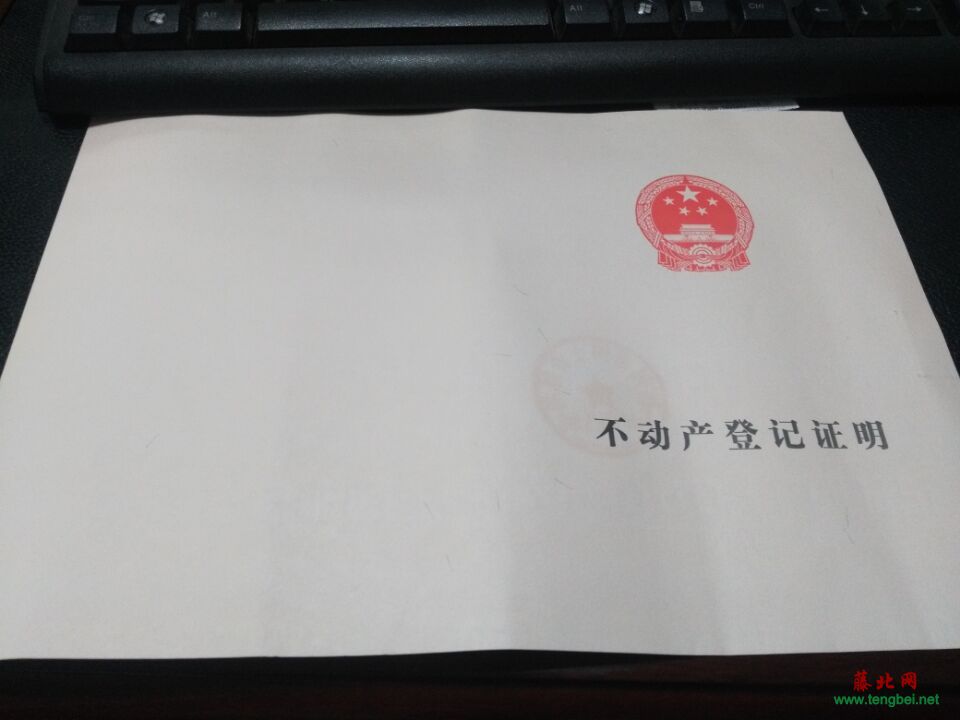 Alt
Alt
Ctrl
不动产登记证明
藤北网
www.tengbei.net